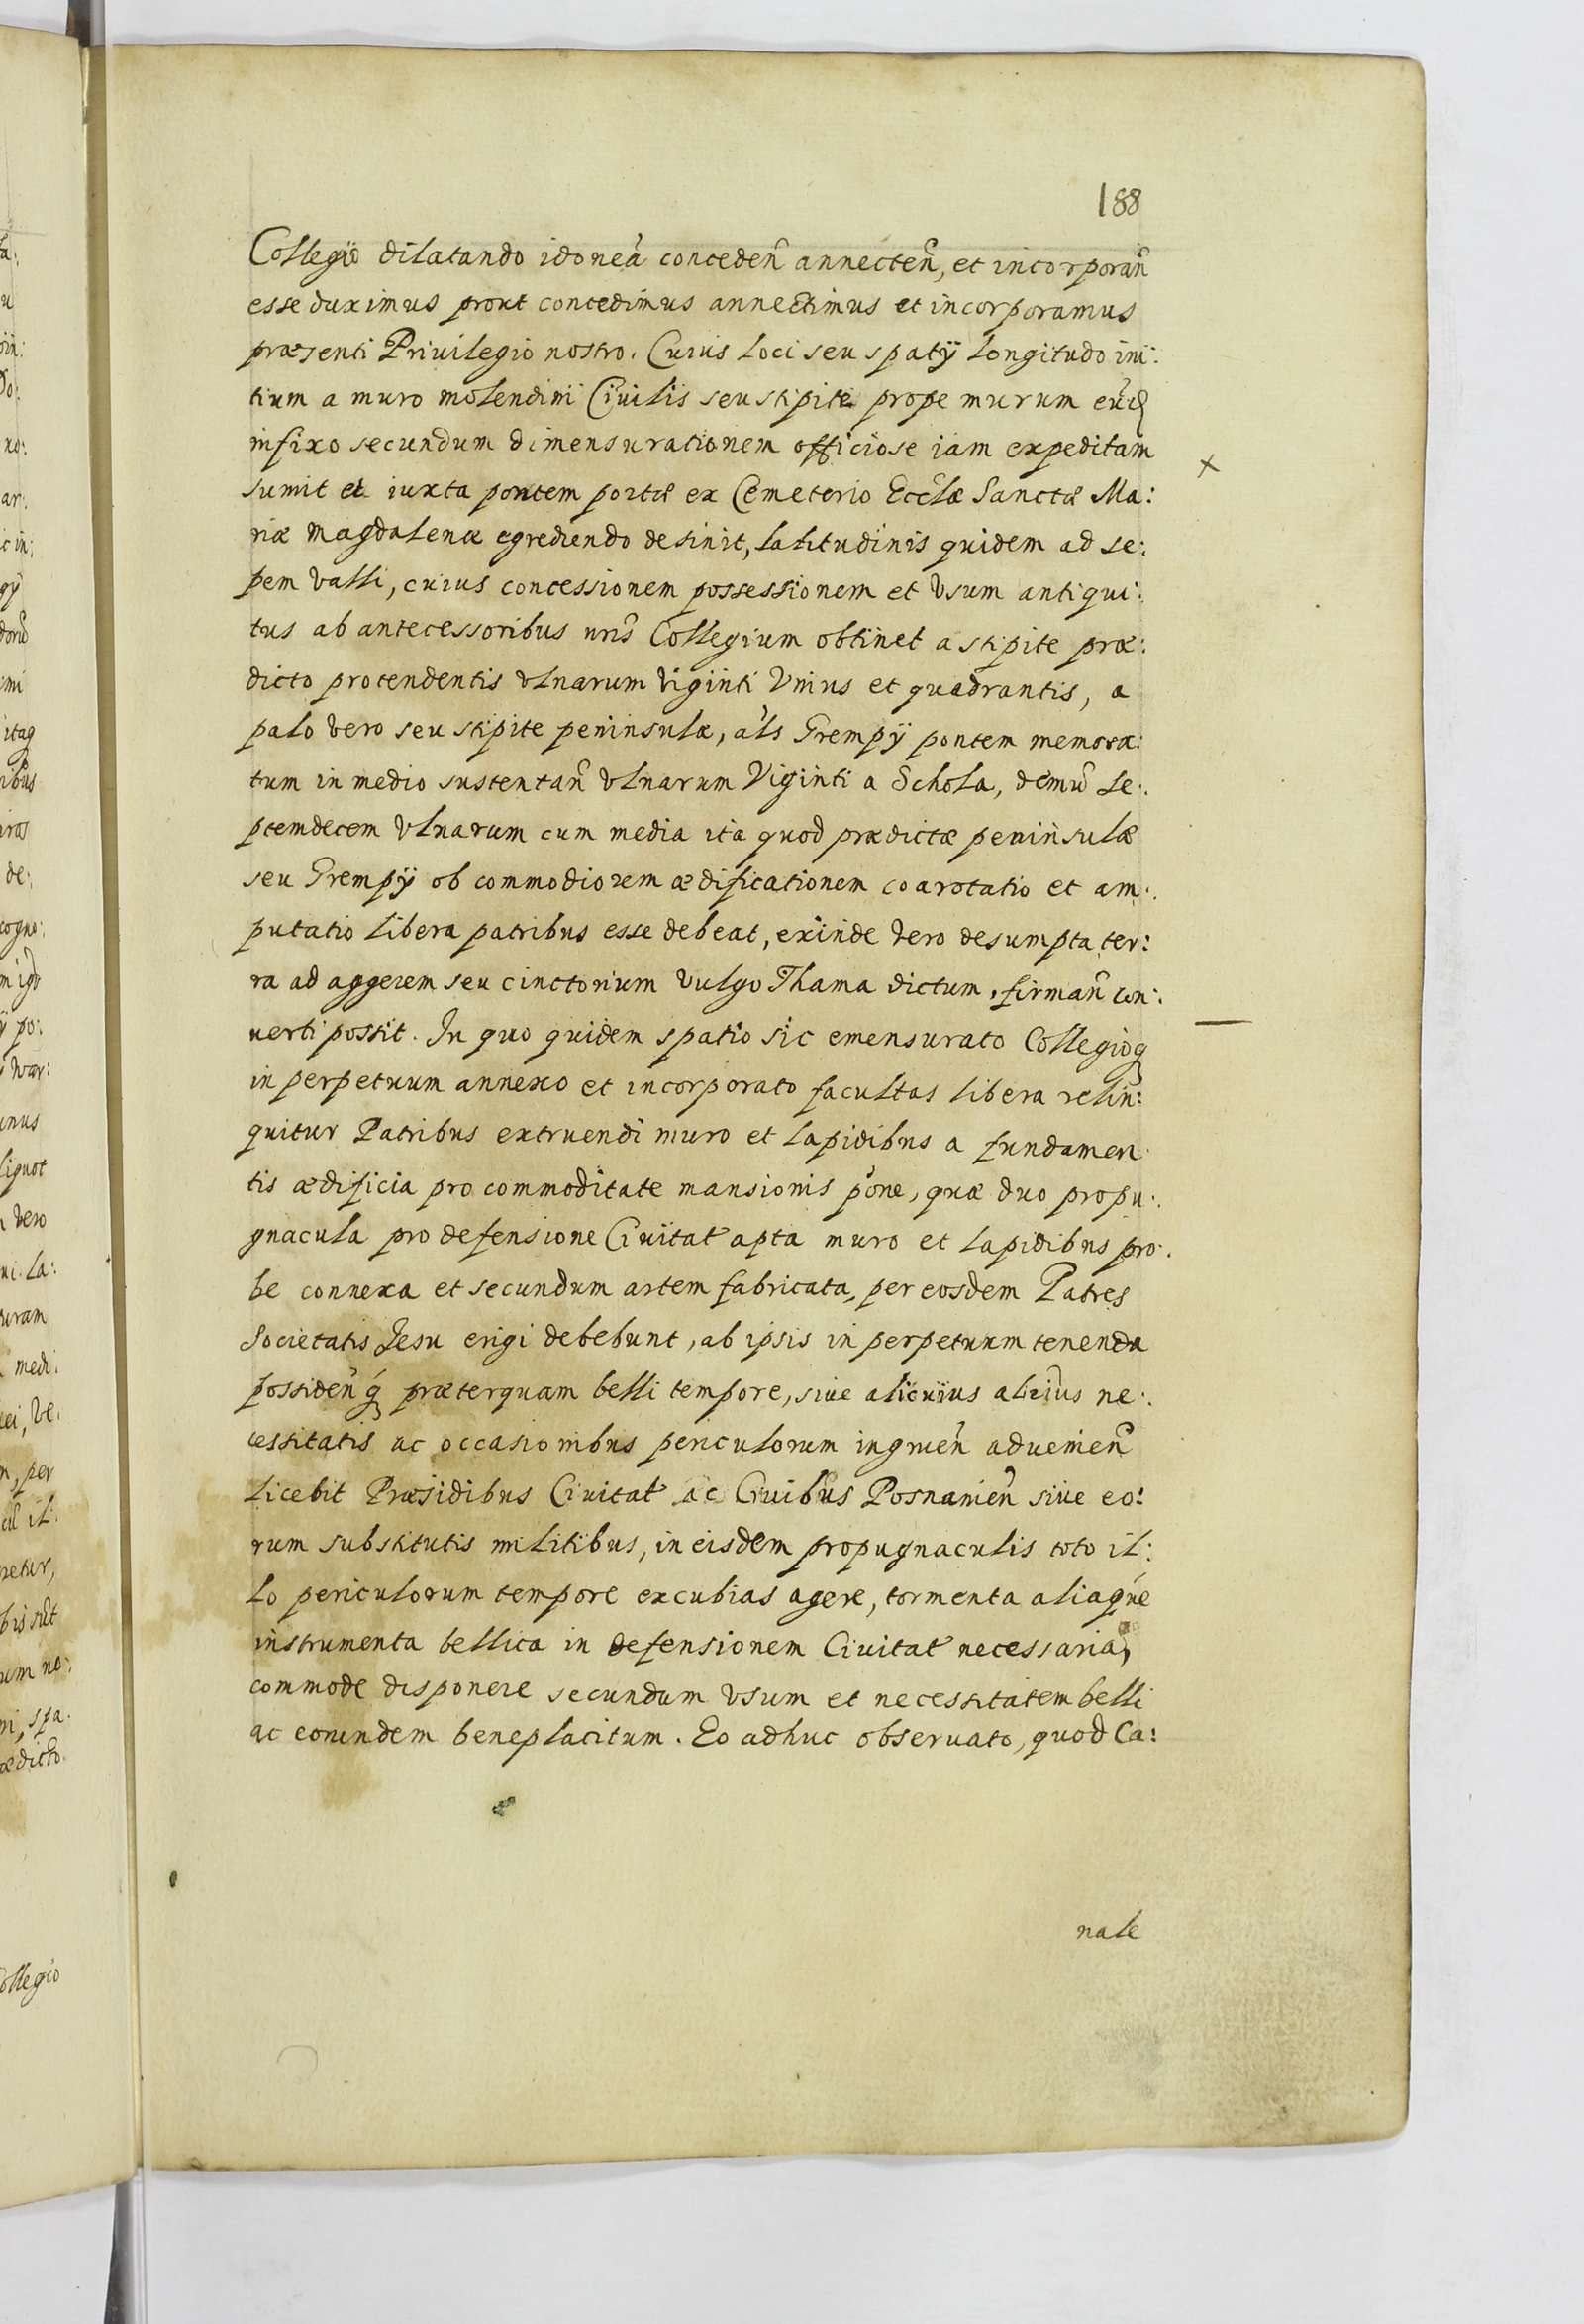 188
Collegio dilatando idoneã concedeñ annecteñ, et incorporañ
esse duximus prout concedimus annectimus et incorporamus
præsenti Priuilegio nostro. Cuius loci seu spatÿ longitudo ini:
tium a muro molendini Ciuilis seu stipite prope murum
infixo secundum dimensurationem officiose iam expeditam
sumit et iuxta pontem portæ ex Cemeterio Eccłæ Sanctæ Ma:
riæ Magdalenæ egrediendo desinit, latitudinis quidem ad se:
pem valli, cuius concessionem possessionem et vsum antiqui:
tus ab antecessoribus nr̃is Collegium obtinet a stipite præ:
dicto protendentis vlnarum viginti Vnius et quadrantis, a
palo vero seu stipite peninsulæ, als Grempÿ pontem memora:
tum in medio sustentañ vlnarum Viginti a Schola, demũ se:
ptemdecem vlnarum cum media ita quod prædictæ peninsulæ
seu Grempÿ ob commodiorem ædificationem coarctatio et am:
putatio libera patribus esse debeat, exinde vero desumpta ter:
ra ad aggerem seu cinctorium vulgo Thama dictum, firmañ con:
uerti possit. In quo quidem spatio sic emensurato Collegioq
in perpetuum annexo et incorporato facultas libera relin:
quitur Patribus extruendi muro et lapidibus a fundamen
tis ædificia pro commoditate mansionis põne, quæ duo propu:
gnacula pro defensione Ciuitat apta muro et lapidibus pro:
be connexa et secundum artem fabricata, per eosdem Patres
Societatis Jesu erigi debebunt, ab ipsis in perpetuum tenenda
possideñq præterquam belli tempore, siue alicuius alterius ne:
cessitatis ac occasionibus periculorum ingrueñ adueñieñ
licebit Præsidibus Ciuitat ac Ciuibus Posnanieñ siue eo:
rum substitutis militibus, in eisdem propugnaculis toto il:
lo periculorum tempore excubias agere, tormenta aliaque
instrumenta bellica in defensionem Ciuitat necessaria,
commode disponere secundum vsum et necessitatem belli
ac eorundem beneplacitum. Eo adhuc obseruato, quod Ca:
nale